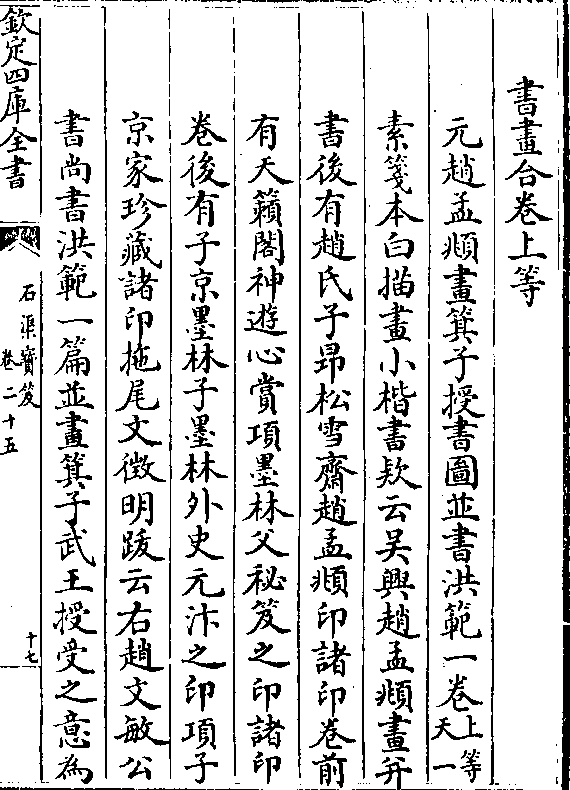 書畫合卷上等
元趙孟頫畫箕子授書圖並書洪範一卷上等天一
素箋本白描畫小楷書款云吴興趙孟頫畫并
書後有趙氏子昂松雪齋趙孟頫印諸印卷前
有天籟閣神遊心賞項墨林父秘笈之印諸印
卷後有子京墨林子墨林外史元汴之印項子
京家珍藏諸印拖尾文徴明跋云右趙文敏公
書尚書洪範一篇並畫箕子武王授受之意為
欽定四庫全書
石渠寶笈
卷二十五
十七